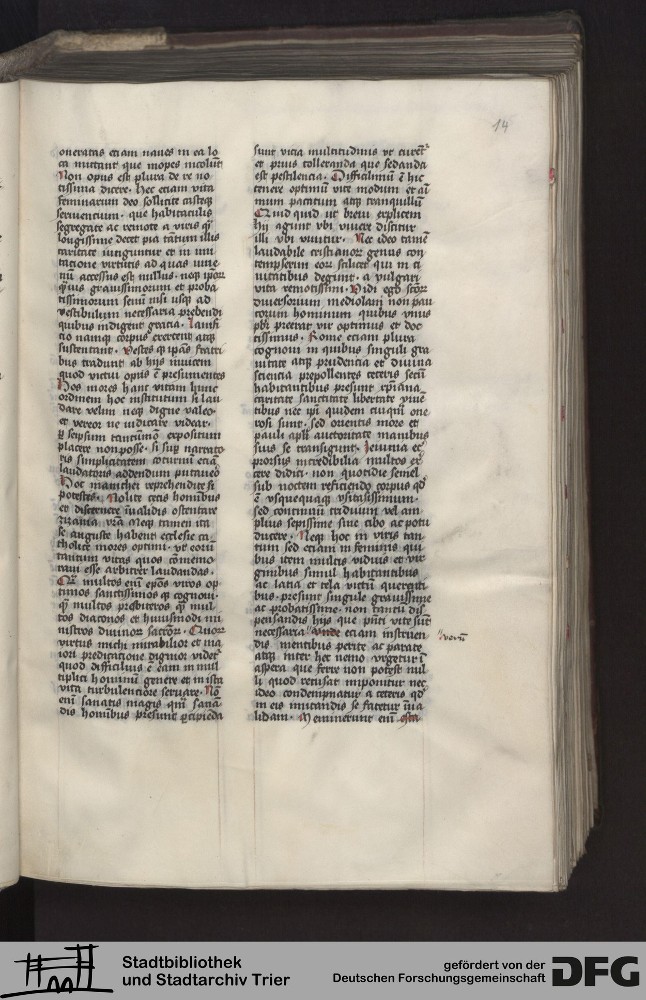 14
oneratas etiam naues in ea lo
ca mittant que inopes incolut̄
Non opus est plura de re no
tissima dicere. Hec etiam vita
feminarum deo sollicite casteq̄
seruiencium. que habitaculis
segregate ac remote a viris q̄
longissime decet pia tātum illis
caritate iunguntur et in mi
tatione virtutis ad quas iuue
nū accessus est nullus. neq̄ ip̄or
q̄uis grauissimorum et proba
tissimorum senū nisi usq̄ ad
vestibulum necessaria prebendi
quibus indigent gratia. Lanifi
cio namq̄ corpus exercent atq̄
sustentant. Vestes q̄ ip̄as fratri
bus tradunt ab hijs inuicem
quod victui opus ē presumentes
Hos mores hanc vitam hunc
ordinem hoc institutum si lau
dare velim neq̄ digne valeo
et vereor ne iudicare videar
ꝑ seipsum tantūmō expositum
placere non posse. si suꝑ narrato
ris simplicitatem coturnū etiā
laudatoris addendum putaueō
Hoc manichei reprehendite si
potestis. Nolite cecis hominibus
et discernere īualidis ostentare
zizania vr̄a Neq̄ tamen ita
se anguste habent ecclesie ca
tholice mores optimi. vt eorū
tantum vitas quos cōmemo
raui esse arbitrer laudandas.
Qm̄ multos enī ep̄os viros op
timos sanctissimos q̄ cognoui.
q̄ multos presbiteros q̄ mul
tos diaconos et huiusmodi mi
nistros diuinor̄ sacr̄or̄. Quorr
virtus michi mirabilior et ma
iori predicatione dignior videt̄
quod difficilius ē eam in mul
tiplici hominū genere et in ista
vita turbulenciore seruare. Nō
enī sanatis magis qm̄ sanā
dis homībus presunt ꝑcipieda
sunt vicia multitudinis vt curēt̄
et prius tolleranda que sedanda
est pestilencia. Difficilimū ē hic
tenere optimū vite modum et aī
mum pacatum atq̄ tranquillū
Quid quid vt breui explicem
hij agunt vbi viuere discitur
illi vbi viuitur. Nec ideo tamē
laudabile cristianor̄ genus con
tempserim eor̄ scilicet qui in ci
uitatibus degunt. a vulgari
vita remotissimi. Vidi ego sc̄or̄
diuersorum mediolani non pau
corum hominum quibus vnus
pbr̄ preerat vir optimus et doc
tissimus. Rome etiam plura
cognoui in quibus singuli gra
uitate atq̄ prudencia et diuina
sciencia prepollentes ceteris secū
habitantibus presunt xp̄iana
caritate sanctitate libertate viuē
tibus nec ip̄i quidem cuiqm̄ one
rosi sunt. sed orientis more et
pauli apl̄i auctoritate manibus
suis se transigunt. Ieiunia et̄
prorsus incredibilia multos ex̄
cere didici. non quotidie semel
sub noctem reficiendo corpus qd̄
ē vsquequaq̄ vsitatissimum.
sed continuū triduum vel am
plius sepissime sine cibo ac potu
ducere. Neq̄ hoc in viris tan
tum sed etiam in feminis qui
bus item multis viduis et vir
ginibus simul habitantibus
ac lana et tela victū querenti
bus. presunt singule grauissime
ac probatissime. non tantū dis
pensandis hijs que pn̄ti vite sūt
necessaria "vnde etiam instruen
dis mentibus perite ac parate
atq̄ inter hec nemo vrgetur ī
aspera que ferre non potest nul
li quod recusat imponitur nec
ideo condempnatur a ceteris qd̄
in eis imitandis se fatetur īua
lidam. Meminerunt enī
"verū
Stadtbibliothek
und Stadtarchiv Trier
gefördert von der
Deutschen Forschungsgemeinschaft
DFG